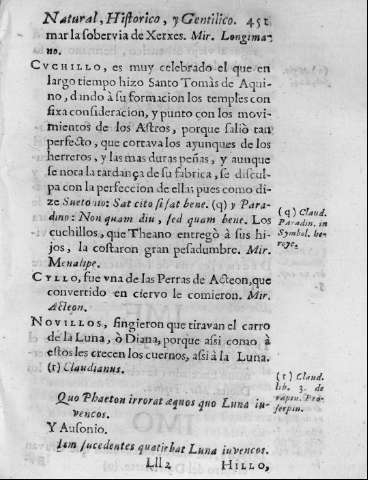 Natural, Historico, y Gentilico. 451
mar la sobervia de Xerxes. Mir. Longima-
no.
CVCHILLO, es muy celebrado el que en
largo tiempo hizo Santo Tomàs de Aqui-
no, dando à su formacion los temples con
fixa consideracion, y punto con los movi-
mientos de los Astros, porque saliò tan
perfecto, que cortava los ayunques de los
herreros, y las mas duras peñas, y aunque
se nota la tardança de su fabrica, se discul-
pa con la perfeccion de ellas pues como di-
ze Suetonio: Sat cito si sat bene. (q) y Para-
dino: Non quam diu, sed quam bene. Los
cuchillos, que Theano entregò à sus hi-
jos, la costaron gran pesadumbre. Mir.
Menalipe.
CYLLO, fue vna de las Perras de Acteon, que
convertido en ciervo le comieron. Mir.
Acteon.
NOVILLOS, fingieron que tiravan el carro
de la Luna, ò Diana, porque assi como à
estos les crecen los cuernos, assi à la Luna.
(r) Claudianus.
Quo Phaeton irrorat æquos quo Luna iu-
vencos.
Y Ausonio.
Iam sucedentes quatiebat Luna iuvencos.
Lll2 HILLO,
(q) Claud.
Paradin. in
Symbol. he-
royc.
(r) Claud.
lib. 3. de
raptu. Pro-
serpin.